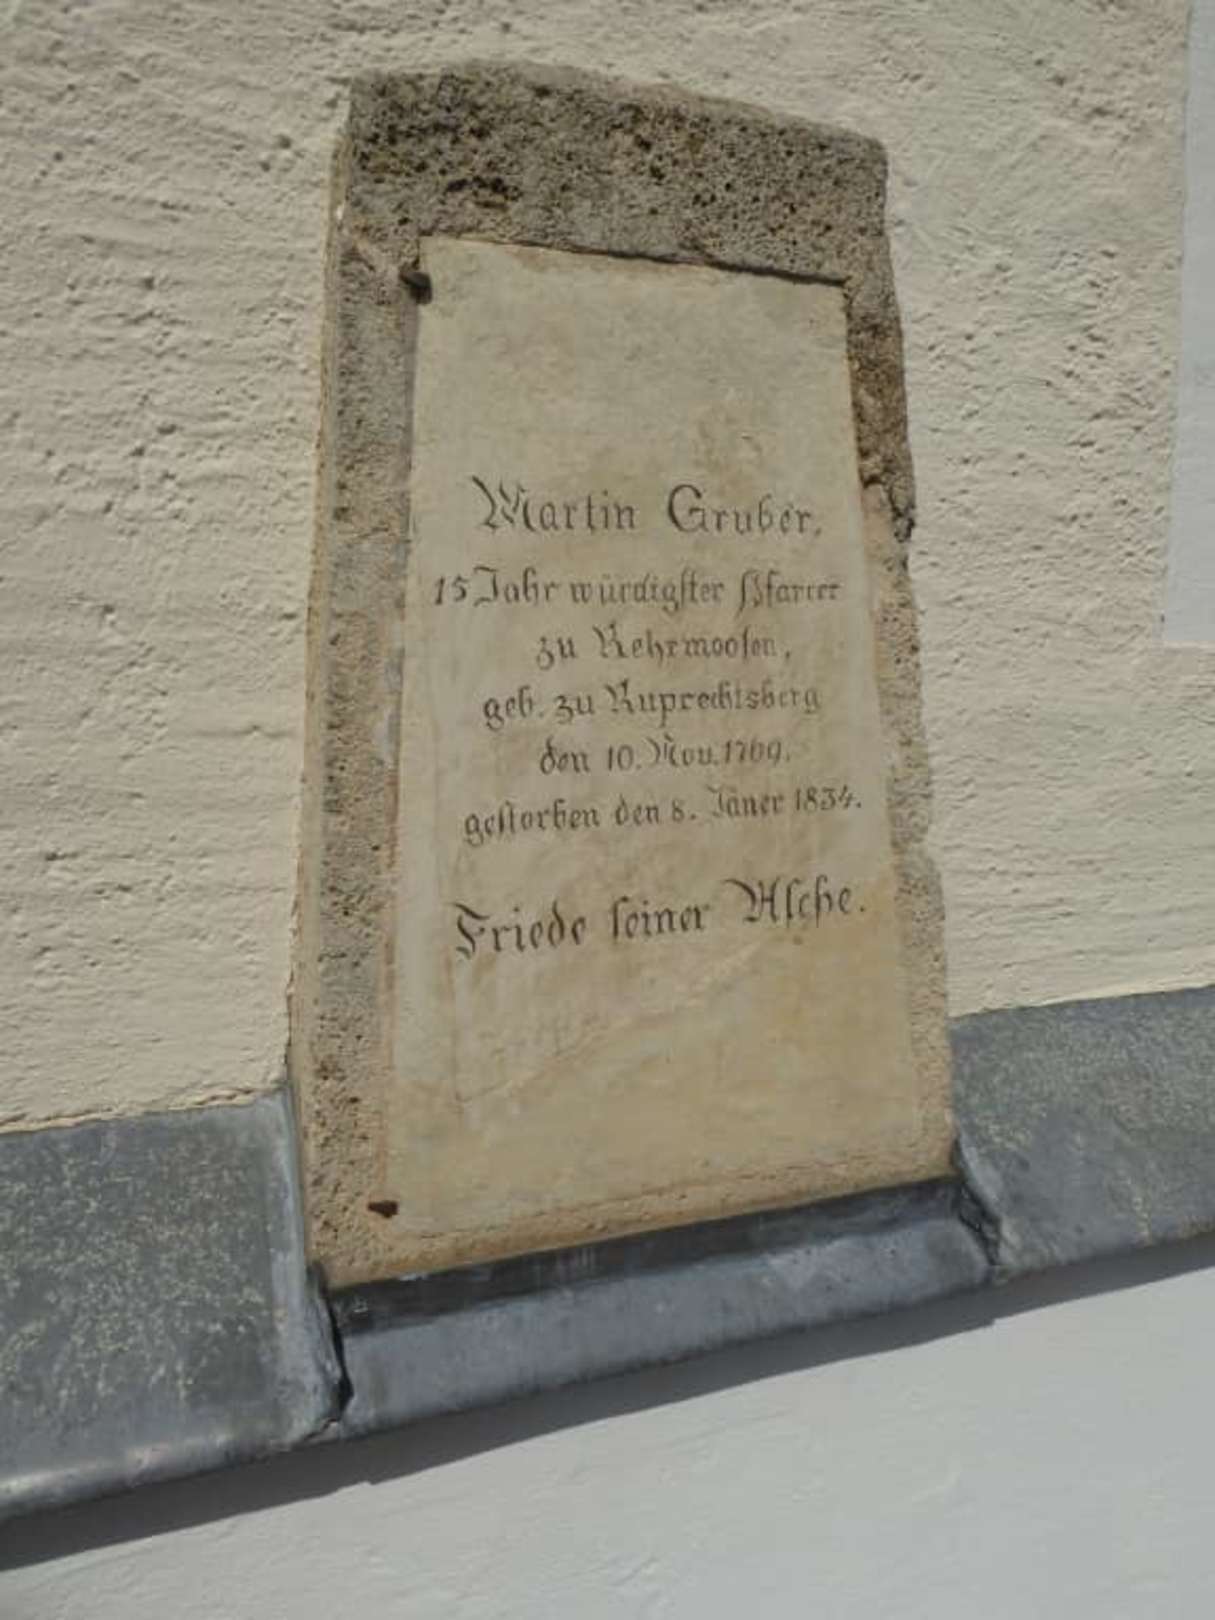 Martin Gruber,
15 Jahr würdigster Pfarrer
zu Kehrmoosen,
geb. zu Ruprechtsberg
den 10. Nov. 1769.
gestorben den 8. Jäner 1834.
Friede seiner Asche.